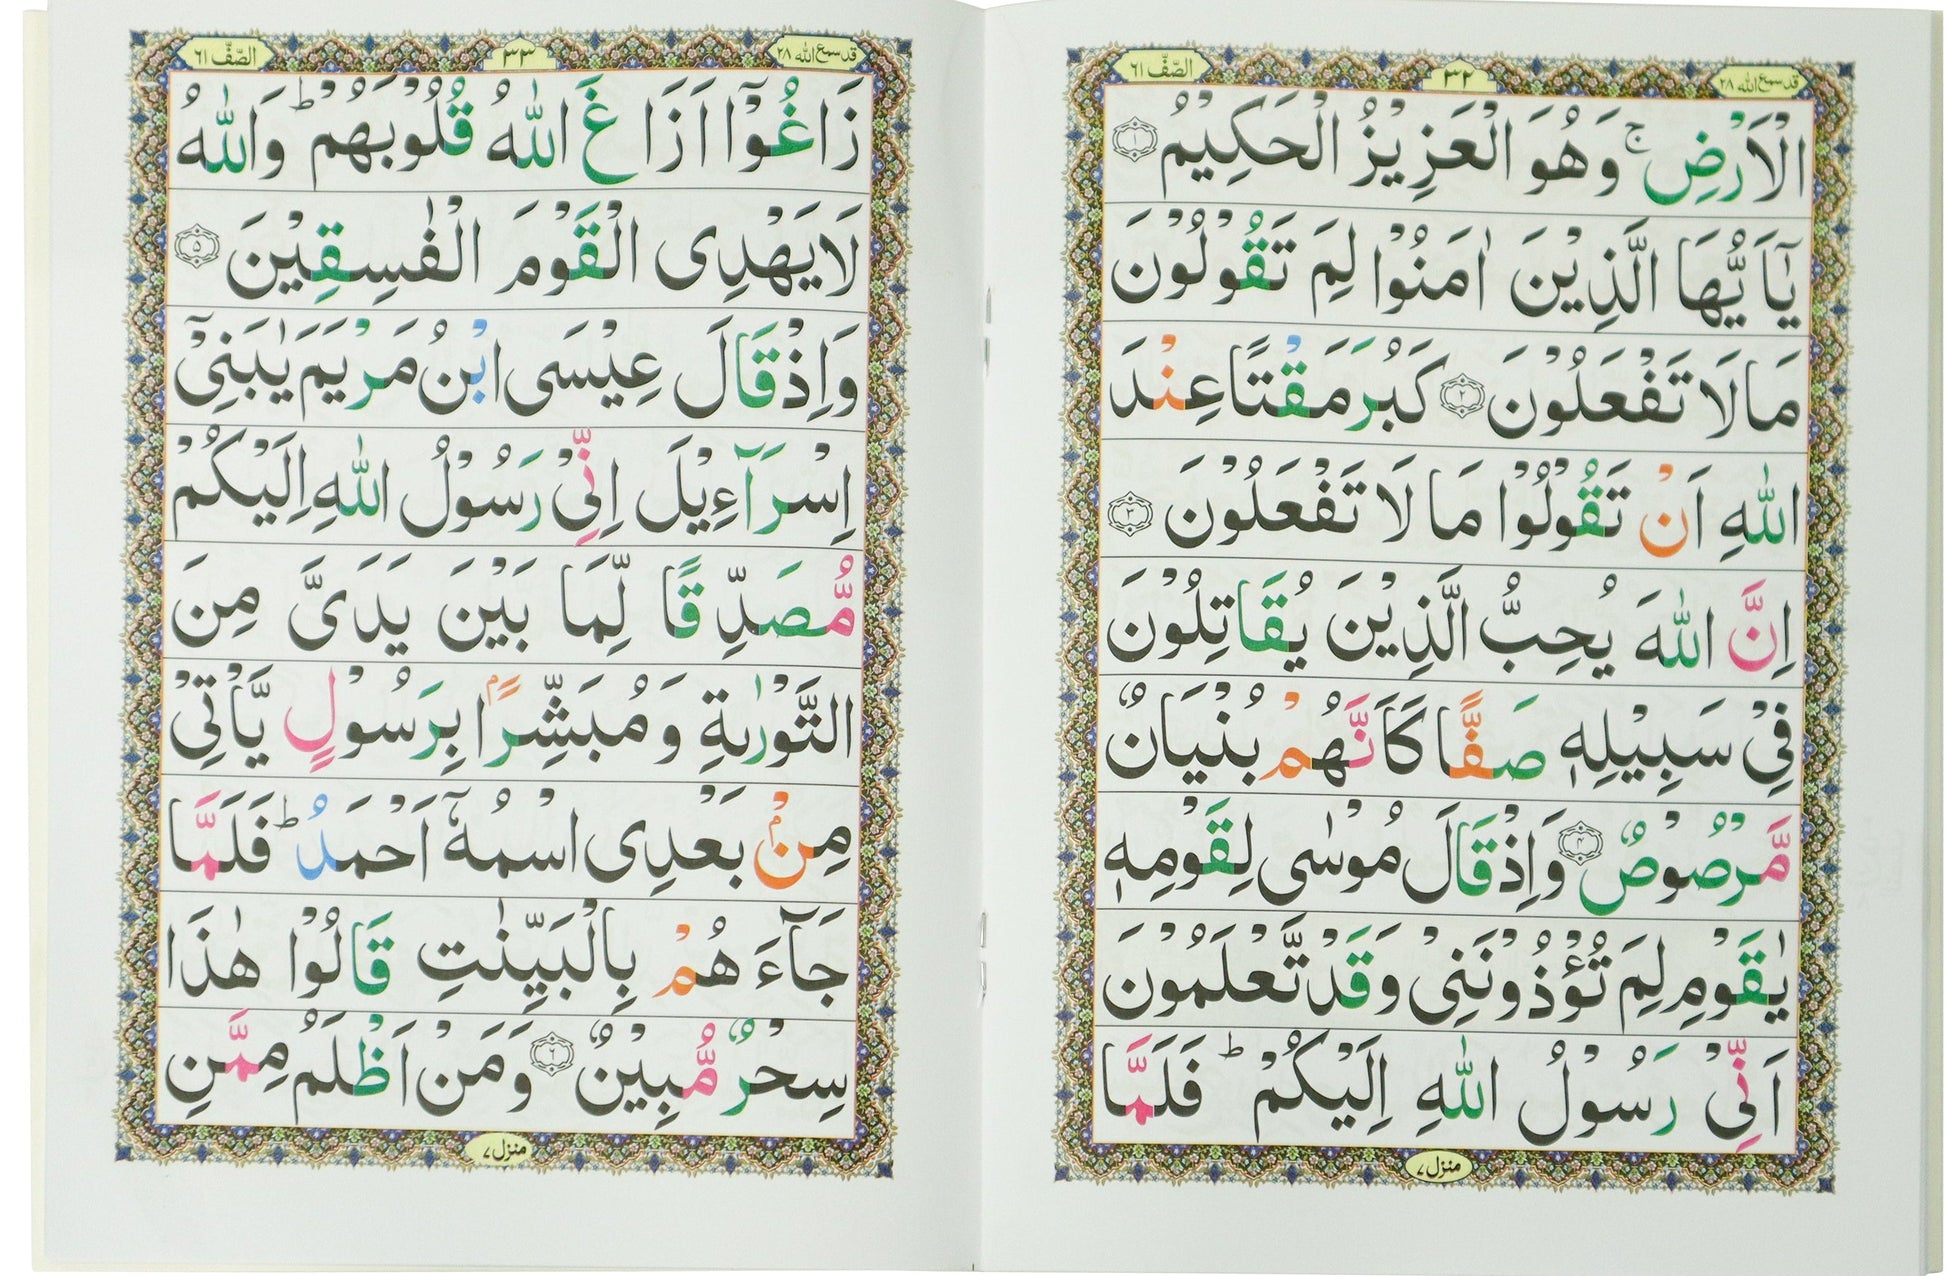 قد سمع الله ٢٨
٣٢
الصّفّ ٦١
الْاَرْضِ ۚ وَهُوَ الْعَزِيْزُ الْحَكِيْمُ ﴿۱﴾
يٰۤاَيُّهَا الَّذِيْنَ اٰمَنُوْا لِمَ تَقُوْلُوْنَ
مَا لَا تَفْعَلُوْنَ ﴿۲﴾ كَبُرَ مَقْتًا عِنْدَ
اللّٰهِ اَنْ تَقُوْلُوْا مَا لَا تَفْعَلُوْنَ ﴿۳﴾
اِنَّ اللّٰهَ يُحِبُّ الَّذِيْنَ يُقَاتِلُوْنَ
فِيْ سَبِيْلِهٖ صَفًّا كَاَنَّهُمْ بُنْيَانٌ
مَّرْصُوْصٌ ﴿۴﴾ وَاِذْ قَالَ مُوْسٰى لِقَوْمِهٖ
يٰقَوْمِ لِمَ تُؤْذُوْنَنِىْ وَقَدْ تَّعْلَمُوْنَ
اَنِّىْ رَسُوْلُ اللّٰهِ اِلَيْكُمْ ؕ فَلَمَّا
منزل ٧
قد سمع الله ٢٨
٣٣
الصّفّ ٦١
زَاغُوْۤا اَزَاغَ اللّٰهُ قُلُوْبَهُمْ ؕ وَاللّٰهُ
لَا يَهْدِى الْقَوْمَ الْفٰسِقِيْنَ ﴿۵﴾
وَاِذْ قَالَ عِيْسَى ابْنُ مَرْيَمَ يٰبَنِىْۤ
اِسْرَآءِيْلَ اِنِّىْ رَسُوْلُ اللّٰهِ اِلَيْكُمْ
مُّصَدِّقًا لِّمَا بَيْنَ يَدَىَّ مِنَ
التَّوْرٰىةِ وَمُبَشِّرًاۢ بِرَسُوْلٍ يَّاْتِىْ
مِنْۢ بَعْدِى اسْمُهٗۤ اَحْمَدُ ؕ فَلَمَّا
جَآءَهُمْ بِالْبَيِّنٰتِ قَالُوْا هٰذَا
سِحْرٌ مُّبِيْنٌ ﴿۶﴾ وَمَنْ اَظْلَمُ مِمَّنِ
منزل ٧